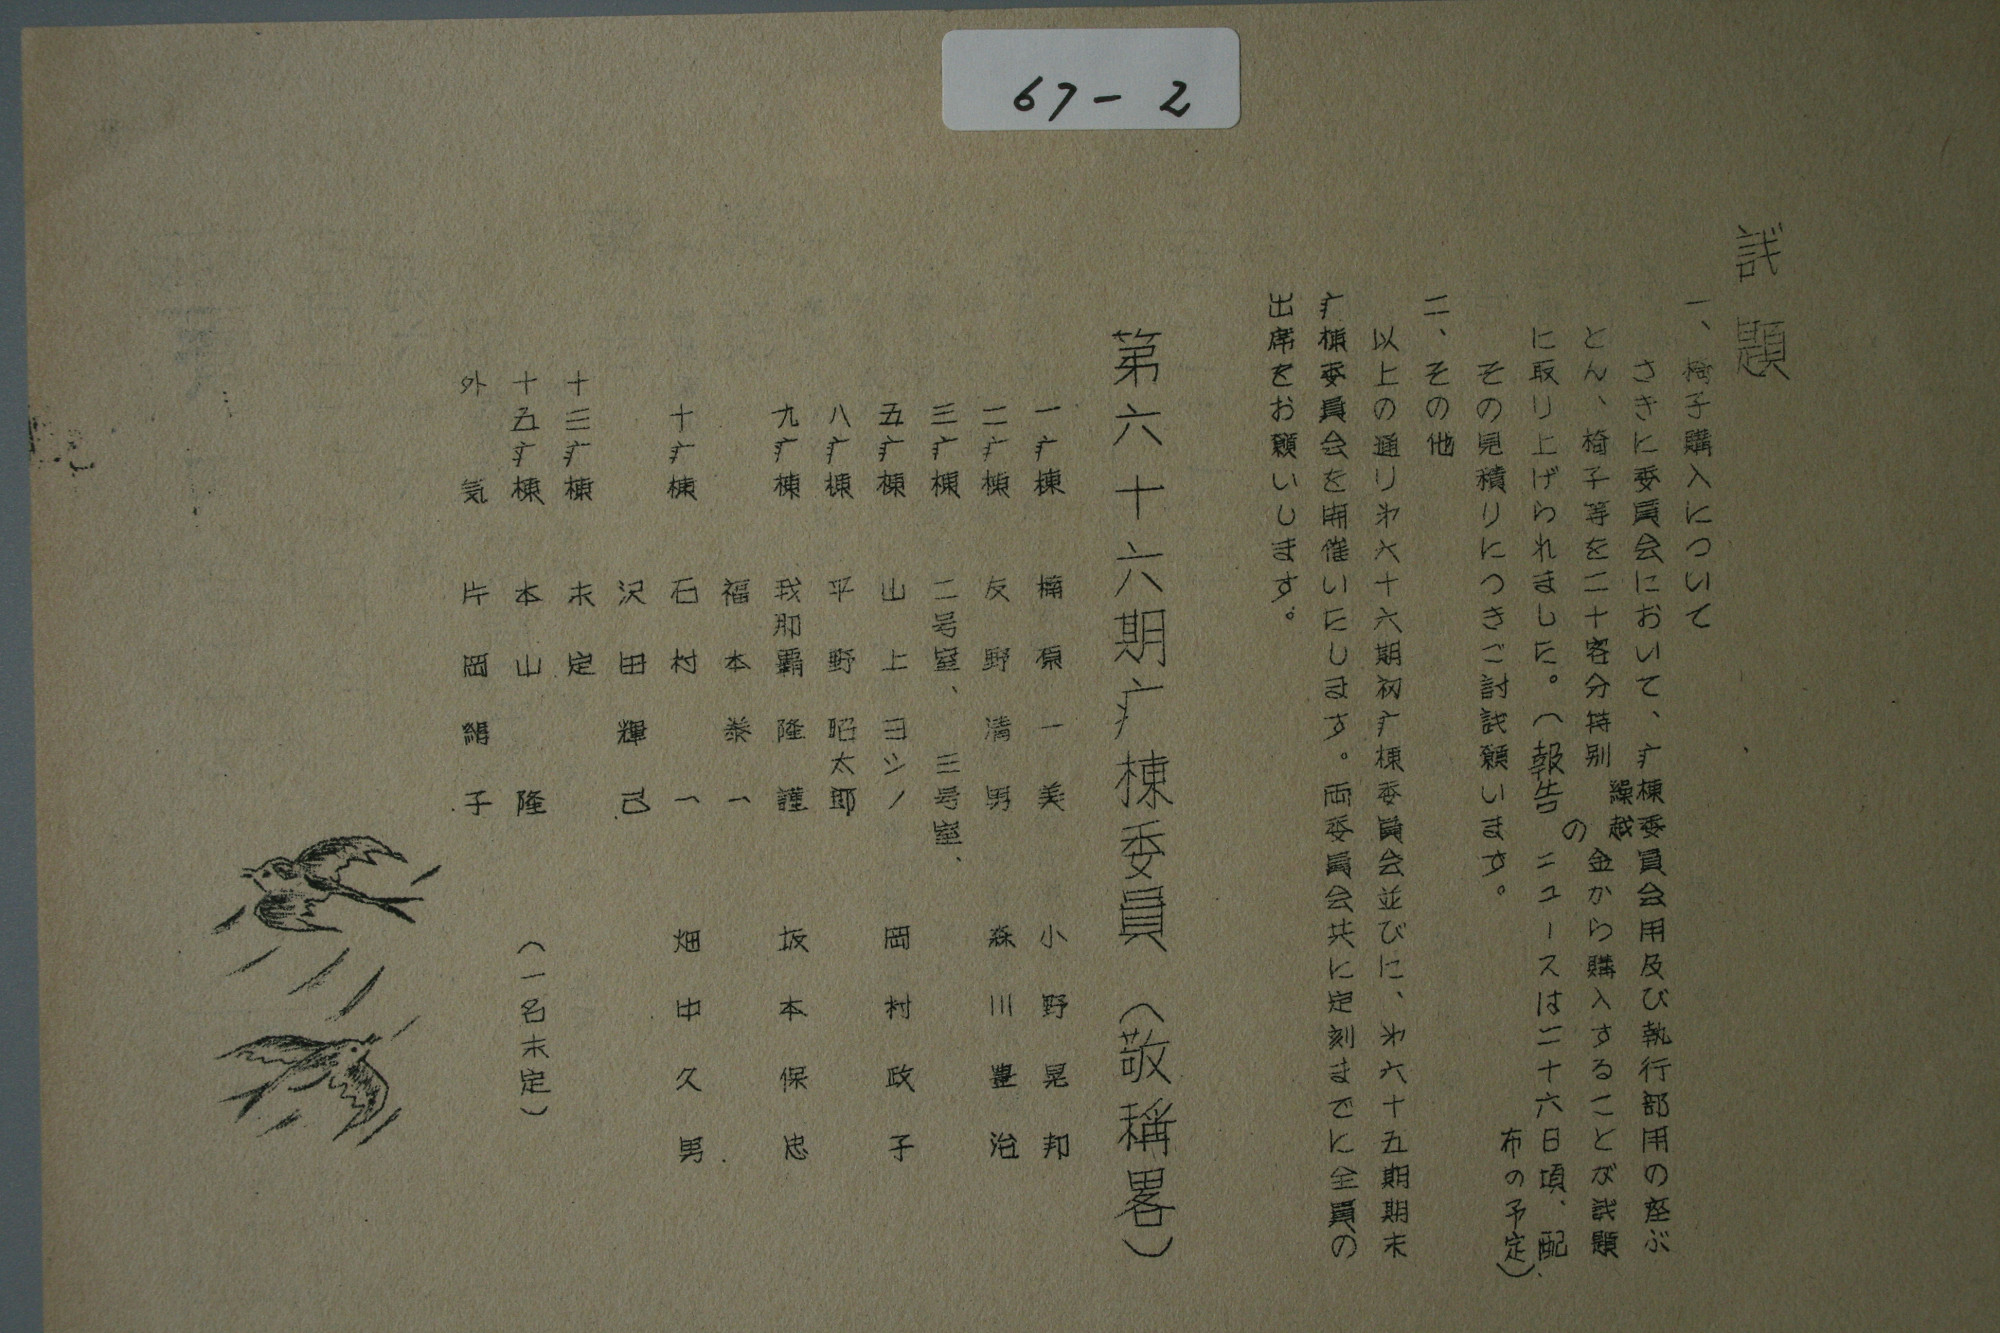 67-2
議題
一、椅子購入について
さきに委員会において、疒棟委員会用及び執行部用の座ぶ
とん、椅子等を二十客分特別繰越金から購入することが議題
に取り上げられました。(報告のニュースは二十六日頃、配
布の予定)
その見積りにつきご討議願います。
二、その他
以上の通り㐧六十六期初疒棟委員会並びに、㐧六十五期期末
疒棟委員会を開催いたします。両委員会共に定刻までに全員の
出席をお願いします。
第六十六期疒棟委員(敬称畧)
一疒棟 楠原一美 小野晃邦
二疒棟 友野清男 森川豊治
三疒棟 二号室、三号室、
五疒棟 山上ヨシノ 岡村政子
八疒棟 平野昭太郎
九疒棟 我那覇隆謹 坂本保忠
福本泰一
十疒棟 石村一 畑中久男
沢田輝己
十三疒棟 未定
十五疒棟 本山隆 (一名未定)
外気 片岡絹子